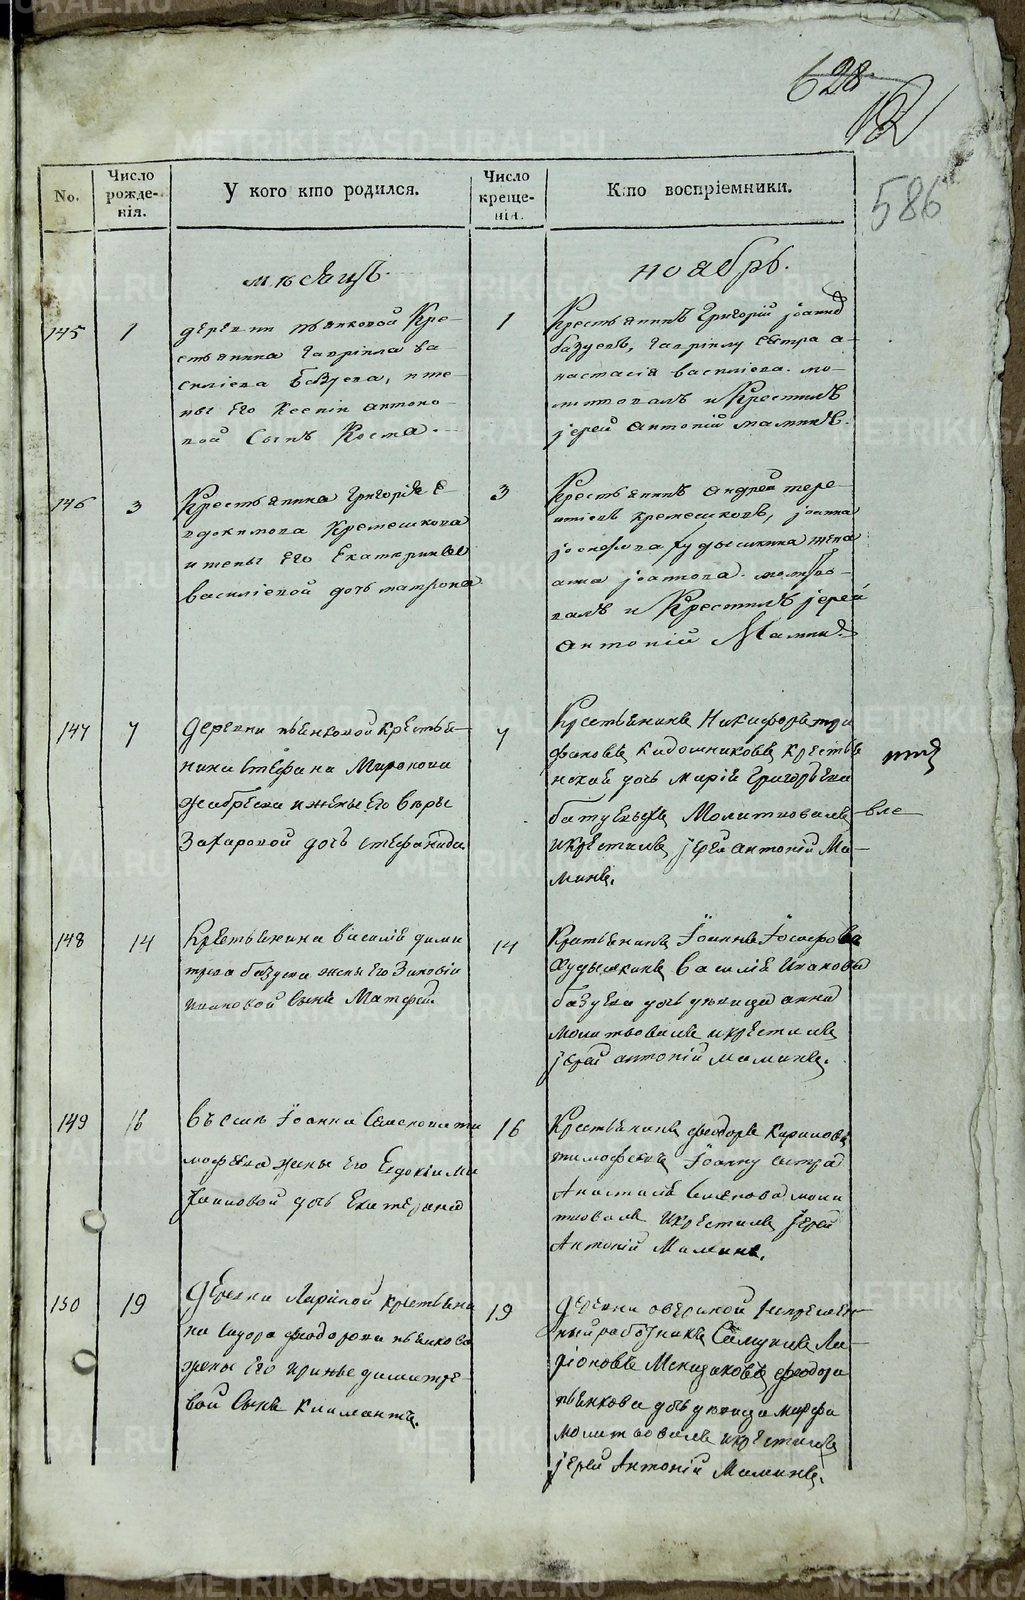 628
586
No.
Число рожде-нія.
У кого кто родился.
Число креще-нія.
Кто воспріемники.
мѣсяцъ.
ноябрь.
145
1
деревни пьянковой Кре-
стьянина Гавріила ва-
силіева Базуева, и же-
ны его Ксеніи антоно-
вой Сынъ Косма.
1
Крестьянинъ Григорій
базуевъ, гавріилу сестра а-
настасія василіева. мо-
литвовалъ и Крестилъ
іерей антоній маминъ.
146
3
Крестьянина Григорія е-
вдокимова Кремешкова
и жены его Екатерины
василіевой дочь матрона
3
Крестьянинъ андрей тере-
нтіевъ кремешковъ, іоанна
іосифова худышкина жена
анна. молитво-
валъ и Крестилъ іерей
Антоній Маминъ
147
7
деревни пьянковой крестья-
нина Стефана Миронова
жабрева и жены его вѣры
Захаровой дочь стефанида
7
Крестьянинъ Никифоръ три
фановъ кадошниковъ крестья
нской дочь марія григорьева
батуева Молитвовалъ
икрестилъ іерей антоній Ма-
минъ.
148
14
Крестьянина василія дими
трева базуева жены его Зиновіи
ивановой сынъ Матфей
14
Крестьянинъ Іоаннъ Іосифовъ
худышкинъ василія иванова
базуева дочь дѣвица анна
молитвовалъ икрестилъ
іерей антоній маминъ.
149
16
въ селѣ Іоанна Семенова ти
мофеева жены его Евдокіи ми
хаиловой дочь Екатерина
16
Крестьянинъ феодоръ Кириловъ
тимофеевъ Іоанну сестра
Анастасія Семенова моли
твовалъ икрестилъ іерей
Антоній Маминъ.
150
19
деревни Лариной крестьяни
на сидора феодорова пьянкова
жены его ирины димитре-
вой Сынъ Климантъ.
19
деревни овериной непремен-
ный работникъ Самуилъ Ла-
ріоновъ феодора
пьянкова дочь дѣвица марфа
молитвовалъ икрестилъ
іерей Антоній Маминъ.
METRIKI.GASO-URAL.RU